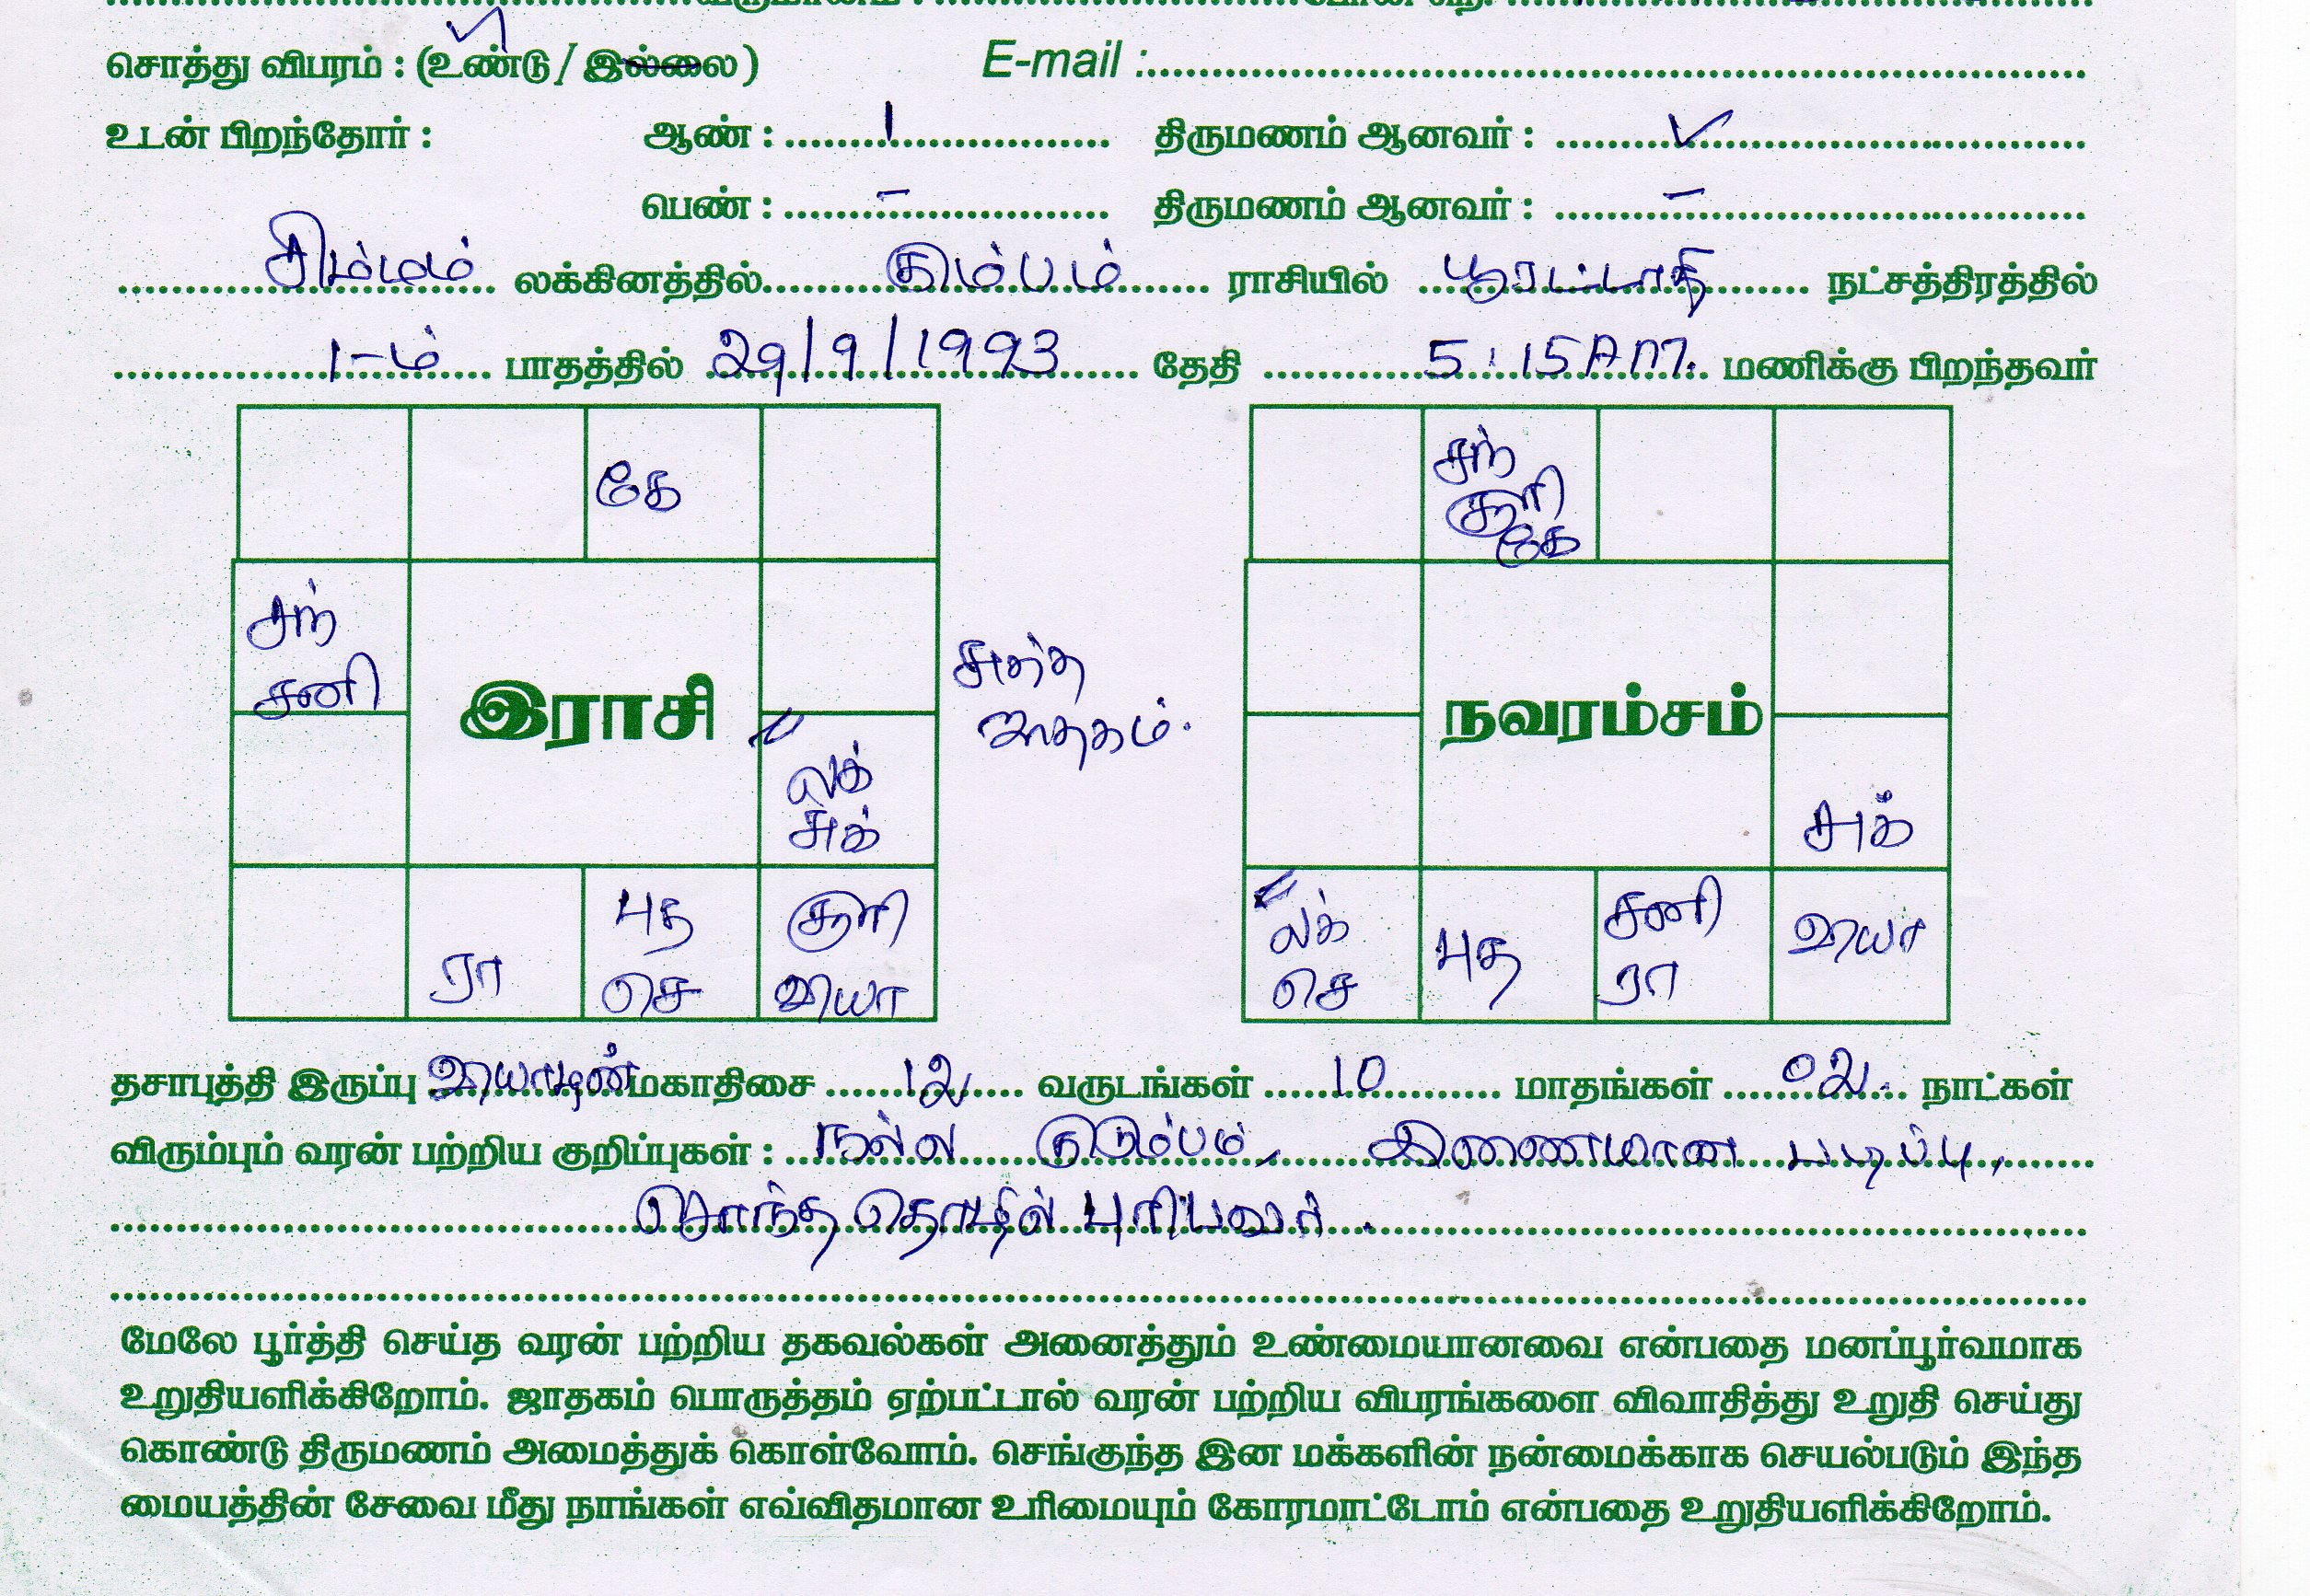 சொத்து விபரம் : (உண்டு / இல்லை) E-mail :
உடன் பிறந்தோர் : ஆண் : 1 திருமணம் ஆனவர் : ✓
பெண் : – திருமணம் ஆனவர் : –
சிம்மம் லக்கினத்தில் கும்பம் ராசியில் பூரட்டாதி நட்சத்திரத்தில்
1-ம் பாதத்தில் 29/9/1993 தேதி 5:15 A.M. மணிக்கு பிறந்தவர்
கே
சந்
சனி
இராசி
லக்
சுக்
ரா
புத
செ
சூரி
வியா
சுத்த
ஜாதகம்.
சந்
சூரி
கே
நவரம்சம்
சுக்
லக்
செ
புத
சனி
ரா
வியா
தசாபுத்தி இருப்பு வியாழன் மகாதிசை 12 வருடங்கள் 10 மாதங்கள் 02 நாட்கள்
விரும்பும் வரன் பற்றிய குறிப்புகள் : நல்ல குடும்பம், இணையான படிப்பு,
சொந்த தொழில் புரிபவர்.
மேலே பூர்த்தி செய்த வரன் பற்றிய தகவல்கள் அனைத்தும் உண்மையானவை என்பதை மனப்பூர்வமாக
உறுதியளிக்கிறோம். ஜாதகம் பொருத்தம் ஏற்பட்டால் வரன் பற்றிய விபரங்களை விவாதித்து உறுதி செய்து
கொண்டு திருமணம் அமைத்துக் கொள்வோம். செங்குந்த இன மக்களின் நன்மைக்காக செயல்படும் இந்த
மையத்தின் சேவை மீது நாங்கள் எவ்விதமான உரிமையும் கோரமாட்டோம் என்பதை உறுதியளிக்கிறோம்.